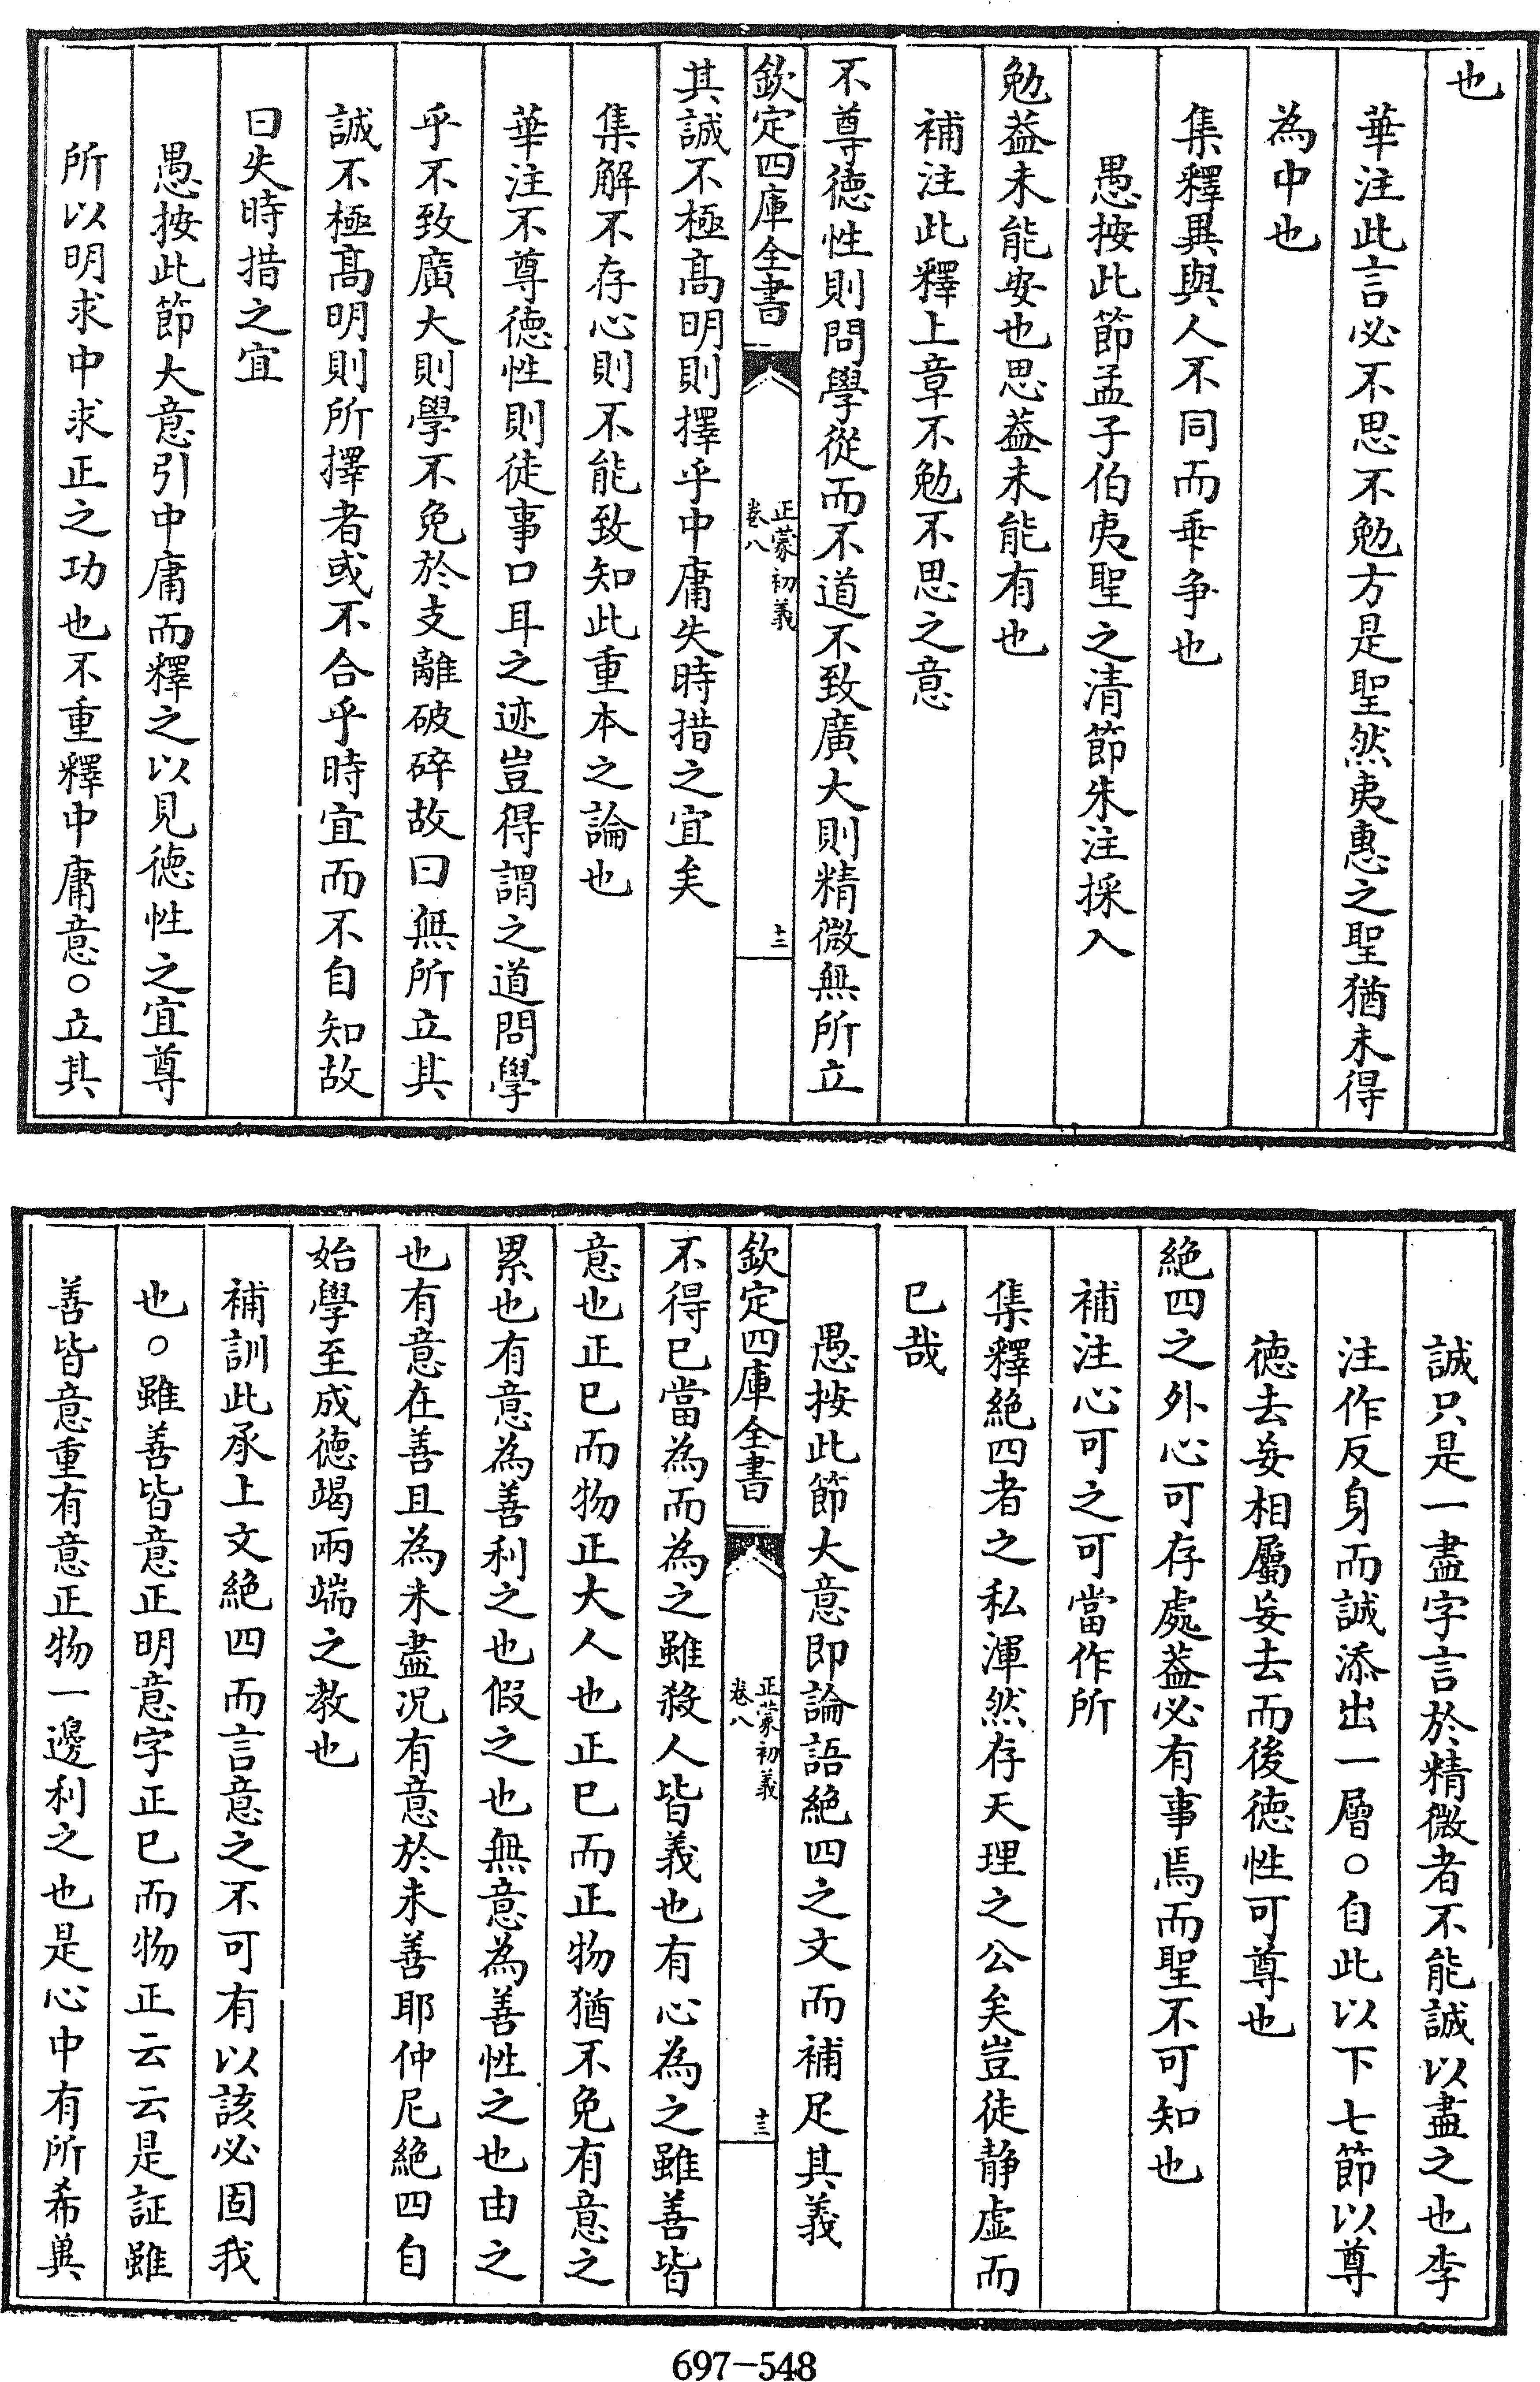 也
華注此言必不思不勉方是聖然夷惠之聖猶未得
為中也
集釋異與人不同而乖争也
愚按此節孟子伯夷聖之清節朱注採入
勉蓋未能安也思蓋未能有也
補注此釋上章不勉不思之意
不尊徳性則問學從而不道不致廣大則精微無所立
欽定四庫全書
正蒙初義
卷八
十二
其誠不極髙明則擇乎中庸失時措之宜矣
集解不存心則不能致知此重本之論也
華注不尊徳性則徒事口耳之迹豈得謂之道問學
乎不致廣大則學不免於支離破碎故曰無所立其
誠不極髙明則所擇者或不合乎時宜而不自知故
曰失時措之宜
愚按此節大意引中庸而釋之以見徳性之宜尊
所以明求中求正之功也不重釋中庸意○立其
誠只是一盡字言於精微者不能誠以盡之也李
注作反身而誠添出一層○自此以下七節以尊
徳去妄相屬妄去而後徳性可尊也
絶四之外心可存處蓋必有事焉而聖不可知也
補注心可之可當作所
集釋絶四者之私渾然存天理之公矣豈徒静虚而
已哉
愚按此節大意即論語絶四之文而補足其義
欽定四庫全書
正蒙初義
卷八
十三
不得已當為而為之雖殺人皆義也有心為之雖善皆
意也正已而物正大人也正已而正物猶不免有意之
累也有意為善利之也假之也無意為善性之也由之
也有意在善且為未盡况有意於未善耶仲尼絶四自
始學至成徳竭兩端之教也
補訓此承上文絶四而言意之不可有以該必固我
也○雖善皆意正明意字正已而物正云云是証雖
善皆意重有意正物一邊利之也是心中有所希兾
697-548